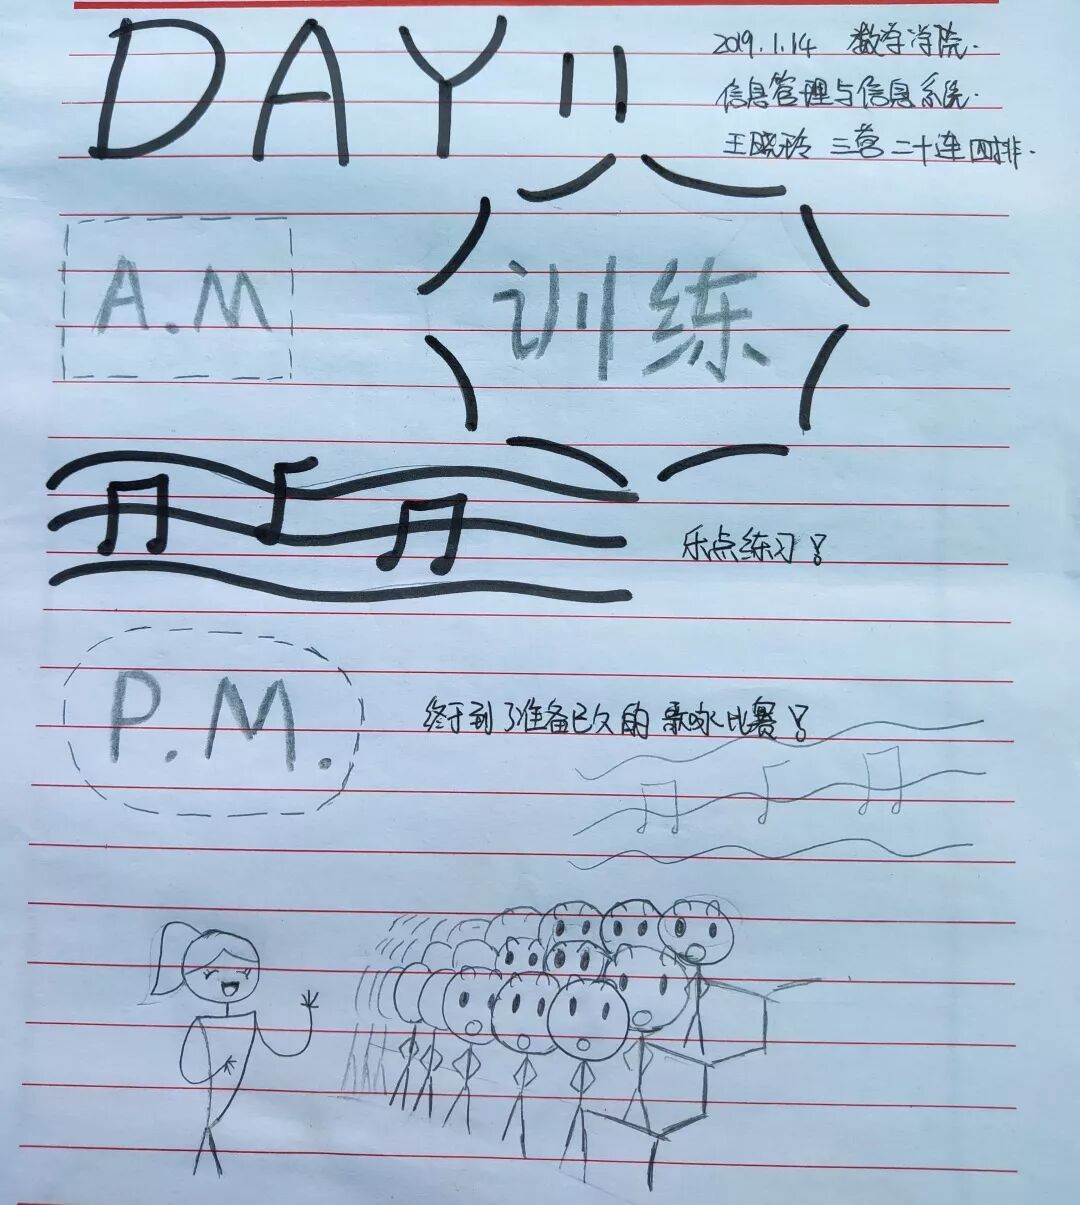 DAY 11
2019.1.14 数学学院.
信息管理与信息系统.
王晓玲 三营二十连四排.
A.M
训练
乐点练习!
P.M.
终于到了准备已久的歌咏比赛!